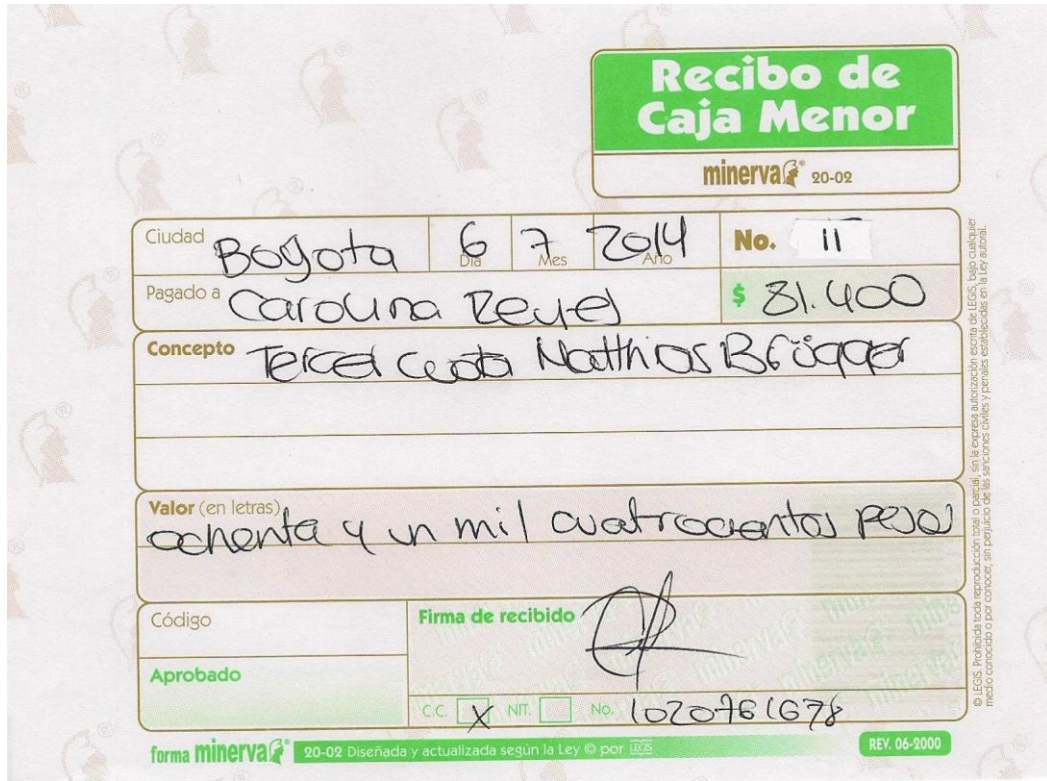 Recibo de
Caja Menor
minerva® 20-02
Ciudad Bogota 6 Día 7 Mes 2014 Año No. 11
Pagado a Carolina Reyes $ 81.400
Concepto Tercer Cuota Matthias Brügger
Valor (en letras)
ochenta y un mil cuatrocientos pesos
Código
Firma de recibido
Aprobado
C.C. X NIT. No. 1020761678
forma minerva® 20-02 Diseñada y actualizada según la Ley © por LEGIS
REV. 06-2000
© LEGIS. Prohibida toda reproducción total o parcial, sin la expresa autorización escrita de LEGIS, bajo cualquier
medio conocido o por conocer, sin perjuicio de las sanciones civiles y penales establecidas en la Ley autoral.